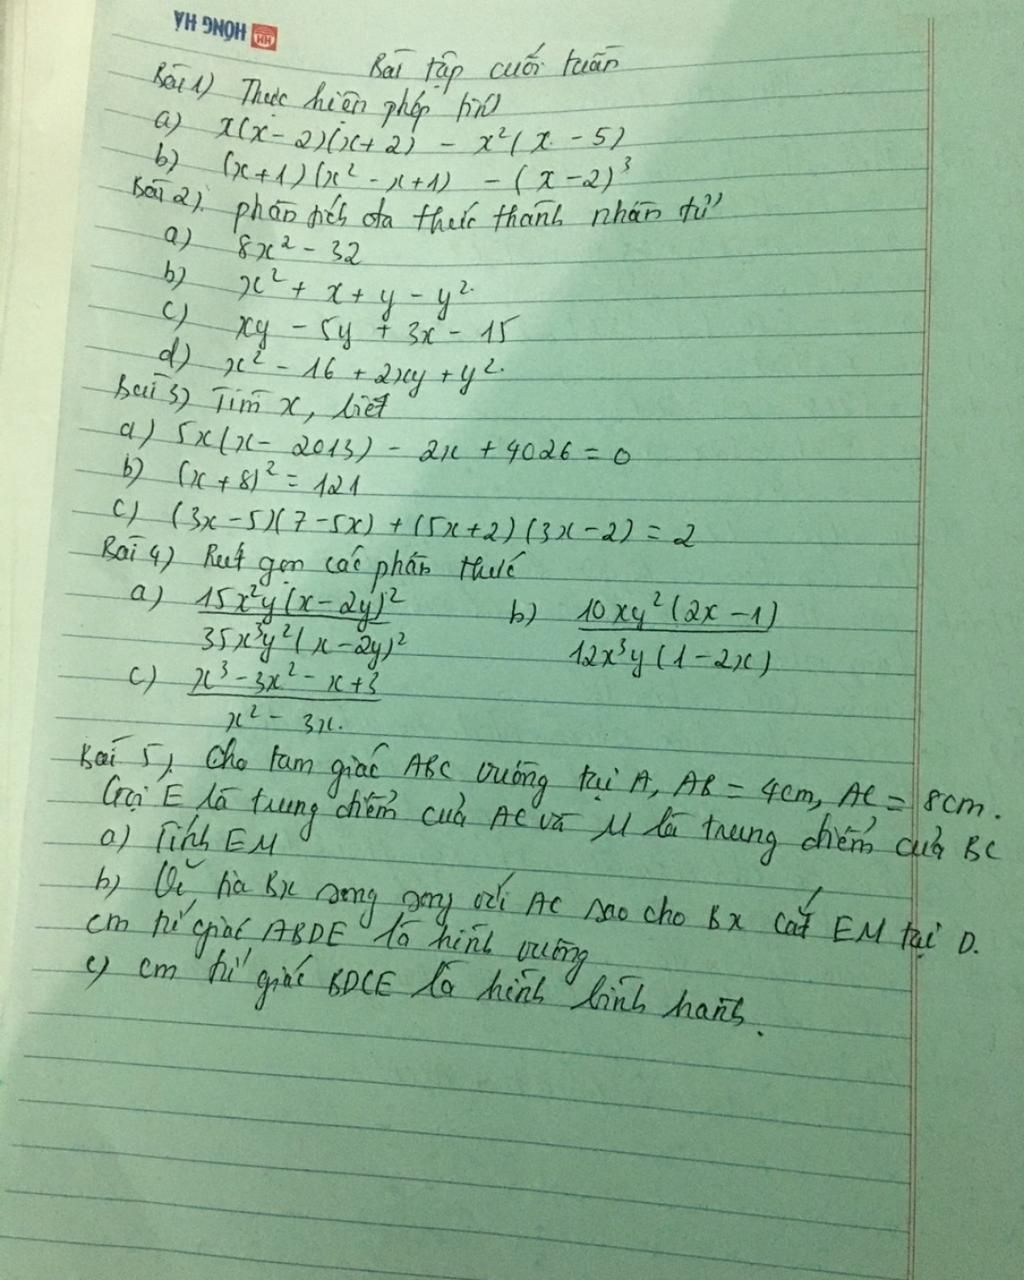 HỒNG HÀ
Bài tập cuối tuần
Bài 1) Thực hiện phép tính
a) x(x - 2)(x + 2) - x²(x - 5)
b) (x + 1)(x² - x + 1) - (x - 2)³
Bài 2) phân tích đa thức thành nhân tử
a) 8x² - 32
b) x² + x + y - y²
c) xy - 5y + 3x - 15
d) x² - 16 + 2xy + y²
Bài 3) Tìm x, biết
a) 5x(x - 2013) - 2x + 4026 = 0
b) (x + 8)² = 121
c) (3x - 5)(7 - 5x) + (5x + 2)(3x - 2) = 2
Bài 4) Rút gọn các phân thức
a) 15x²y(x - 2y)² / 35x³y²(x - 2y)² b) 10xy²(2x - 1) / 12x³y(1 - 2x)
c) x³ - 3x² - x + 3 / x² - 3x
Bài 5) Cho tam giác ABC vuông tại A, AB = 4cm, AC = 8cm.
Gọi E là trung điểm của AC và M là trung điểm của BC
a) Tính EM
b) Vẽ tia Bx song song với AC sao cho Bx cắt EM tại D.
cm tứ giác ABDE là hình vuông
c) cm tứ giác BDCE là hình bình hành.